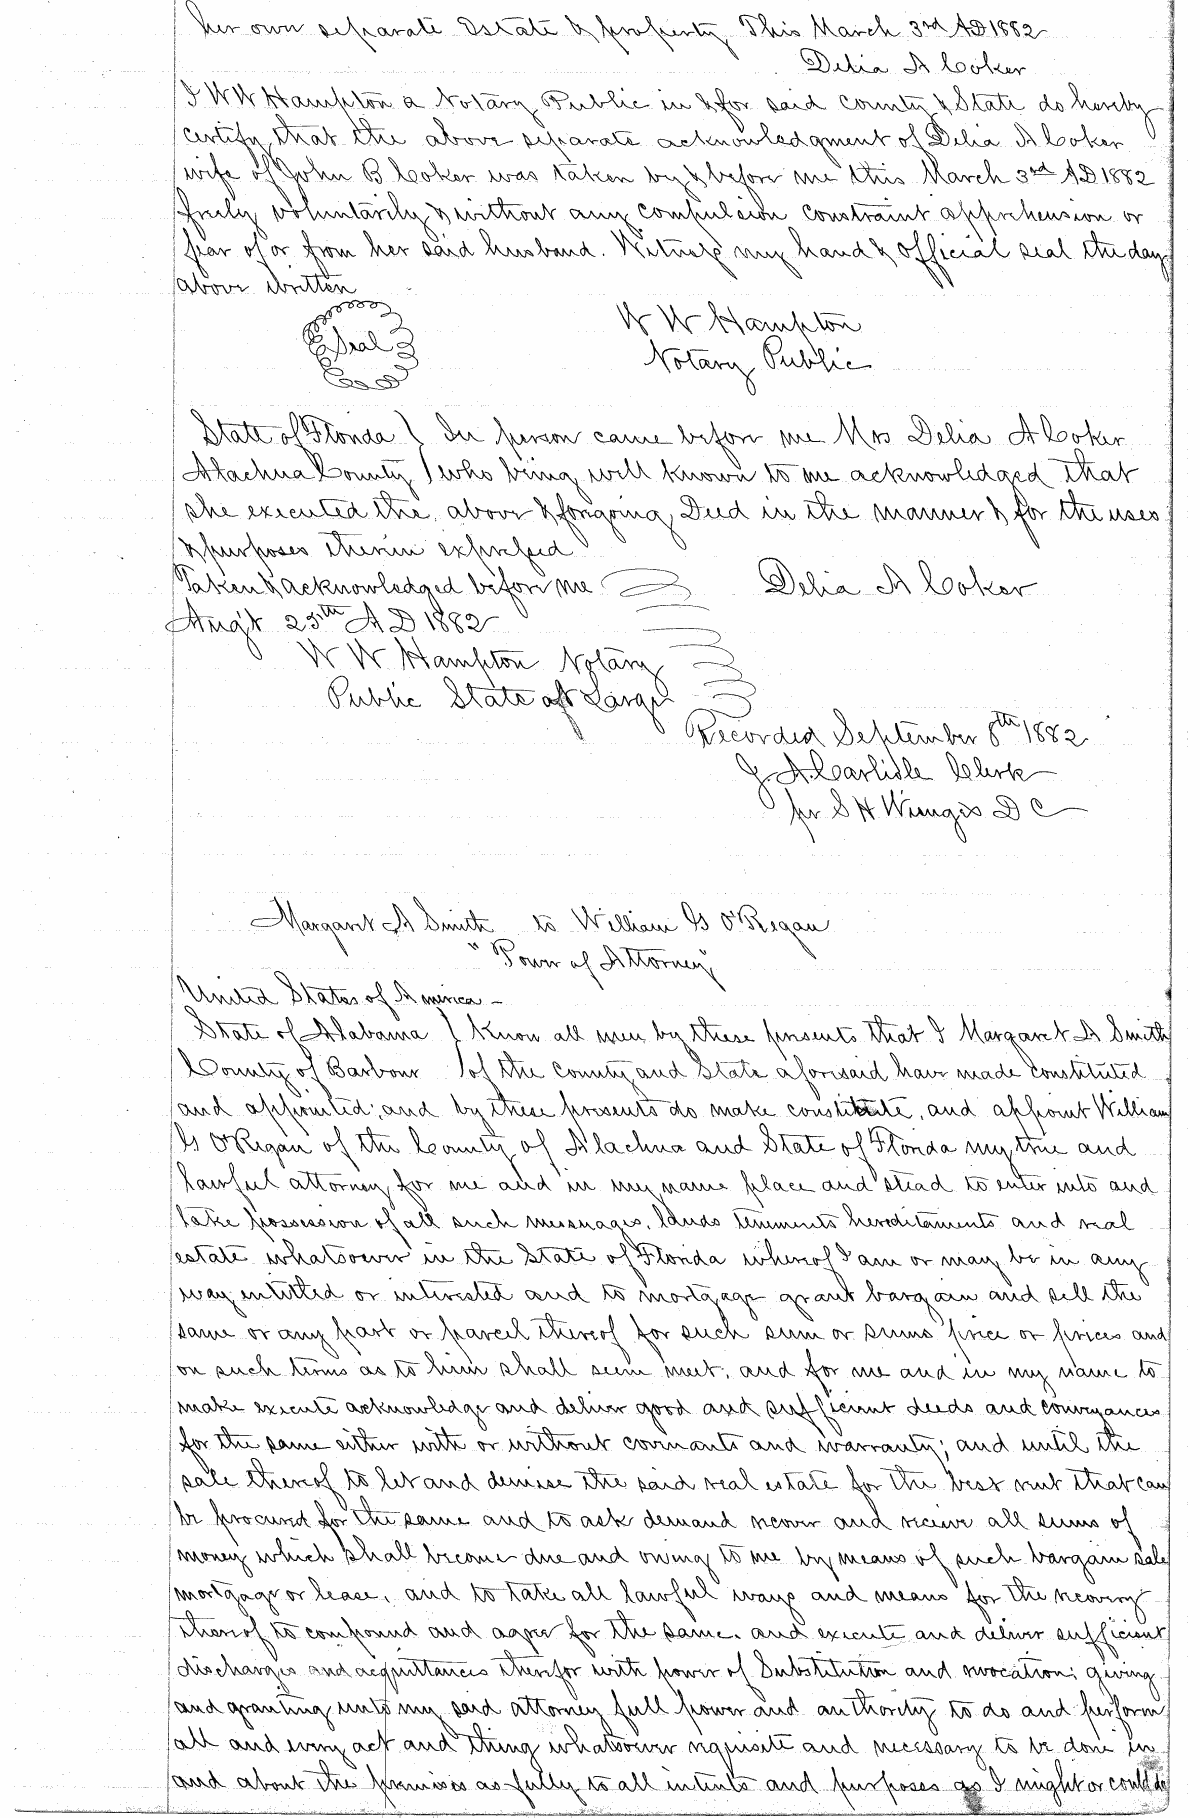 her own separate Estate & property This March 3rd AD 1882
Delia A Coker
I W W Hampton a Notary Public in & for said county & State do hereby
certify that the above separate acknowledgment of Delia A Coker
wife of John B Coker was taken by & before me this March 3rd A.D 1882
freely voluntarily & without any compulsion constraint apprehension or
fear of or from her said husband. Witness my hand & official seal the day
above written
Seal
W W Hampton
Notary Public
State of Florida } In person came before me Mrs Delia A Coker
Alachua County } who being well known to me acknowledged that
she executed the above & foregoing Deed in the manner & for the uses
& purposes therein expressed
Taken & acknowledged before me
Delia A Coker
Aug't 25th A D 1882
W W Hampton Notary
Public State at Large
Recorded September 8th 1882
J. A. Carlisle Clerk
per S H Wienges D C
Margaret A Smith to William G O'Regan
"Power of Attorney"
United States of America –
State of Alabama } Know all men by these presents that I Margaret A Smith
County of Barbour } of the County and State aforesaid have made constituted
and appointed, and by these presents do make constitute, and appoint William
G O'Regan of the County of Alachua and State of Florida my true and
lawful attorney for me and in my name place and stead to enter into and
take possession of all such messuages, lands tenements hereditaments and real
estate whatsoever in the State of Florida whereof I am or may be in any
way entitled or interested and to mortgage grant bargain and sell the
same or any part or parcel thereof for such sum or sums price or prices and
on such terms as to him shall seem meet; and for me and in my name to
make execute acknowledge and deliver good and sufficient deeds and conveyances
for the same either with or without covenants and warranty; and until the
sale thereof to let and demise the said real estate for the best rent that can
be procured for the same and to ask demand recover and receive all sums of
money which shall become due and owing to me by means of such bargain sale
mortgage or lease, and to take all lawful ways and means for the recovery
thereof to compound and agree for the same. and execute and deliver sufficient
discharges and acquittances therefor with power of Substitution and revocation; giving
and granting unto my said attorney full power and authority to do and perform
all and every act and thing whatsoever requisite and necessary to be done in
and about the premises as fully to all intents and purposes as I might or could do